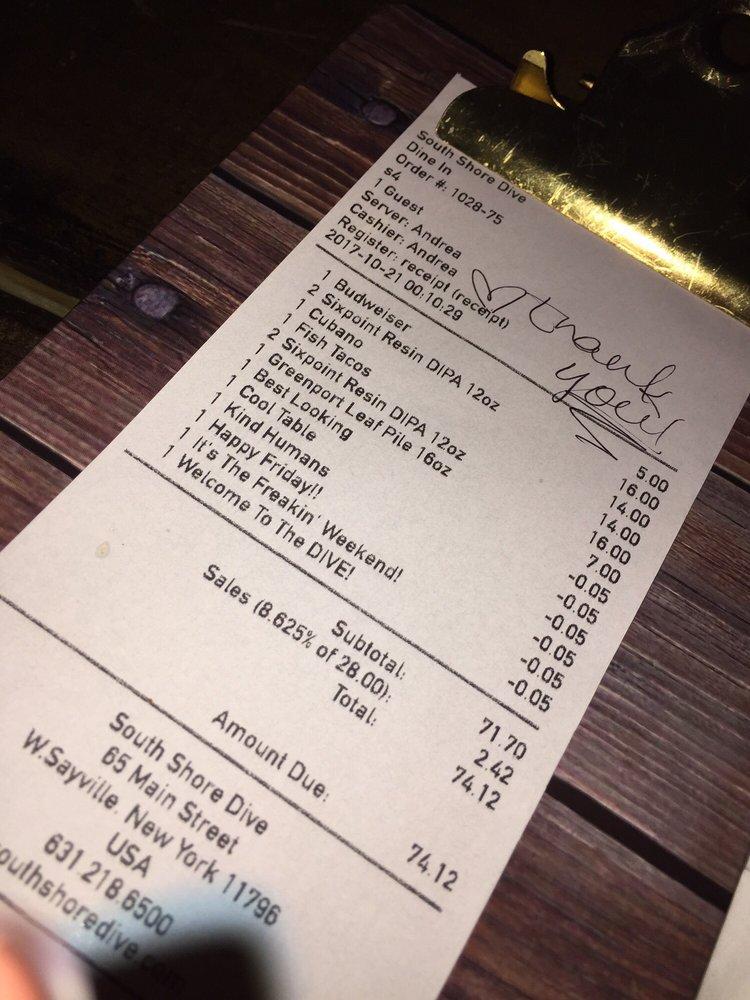 South Shore Dive
Dine In
Order #: 1028-75
s4
1 Guest
Server: Andrea
Cashier: Andrea
Register: receipt (receipt)
2017-10-21 00:10:29
thank
you!
1 Budweiser 5.00
2 Sixpoint Resin DIPA 12oz 16.00
1 Cubano 14.00
1 Fish Tacos 14.00
2 Sixpoint Resin DIPA 12oz 16.00
1 Greenport Leaf Pile 16oz 7.00
1 Best Looking -0.05
1 Cool Table -0.05
1 Kind Humans -0.05
1 Happy Friday!! -0.05
1 It's The Freakin' Weekend! -0.05
1 Welcome To The DIVE! -0.05
Subtotal: 71.70
Sales (8.625% of 28.00): 2.42
Total: 74.12
Amount Due: 74.12
South Shore Dive
65 Main Street
W.Sayville, New York 11796
USA
631.218.6500
outhshoredive.com